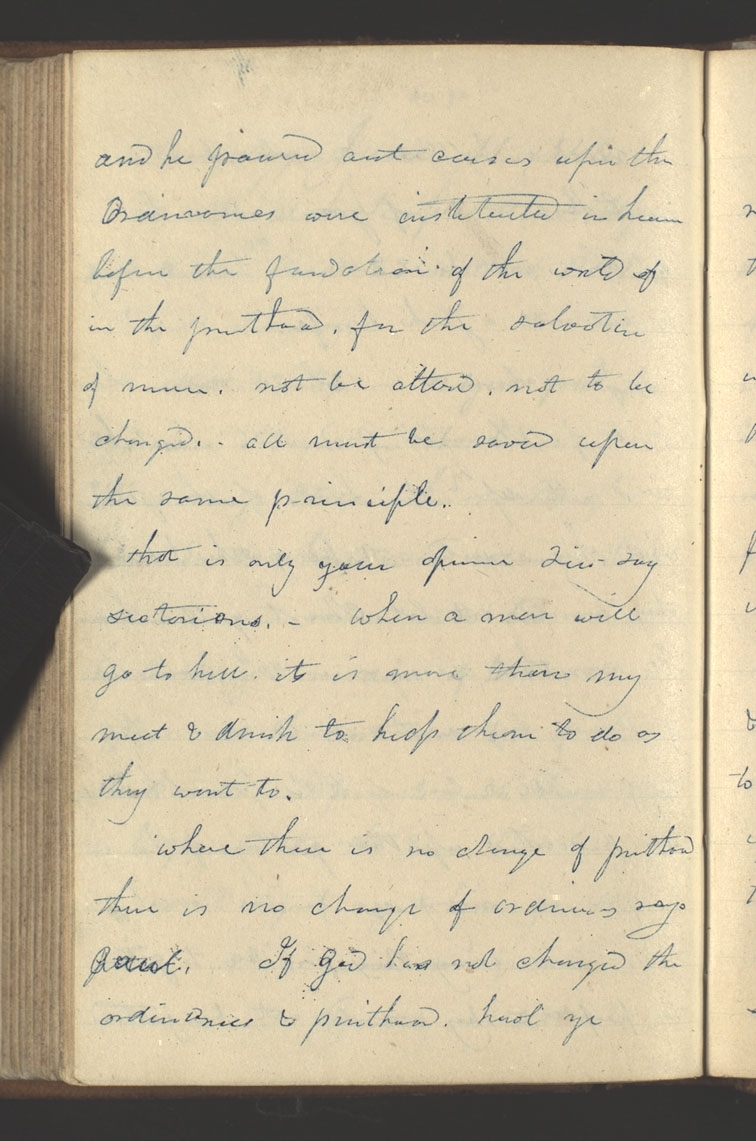 and he poured out curses upon the
Ordinances were instituted in heaven
before the foundation of the world of
in the priesthood, for the salvation
of man. not be altered. not to be
changed. - all must be saved upon
the same principle.
that is only your opinion Sir- say
sectarians. - When a man will
go to hell. it is more than my
meat & drink to help them to do as
they want to.
where there is no change of priesthood
there is no change of ordinances says
Paul. If God has not changed the
ordinances & priesthood. howl ye